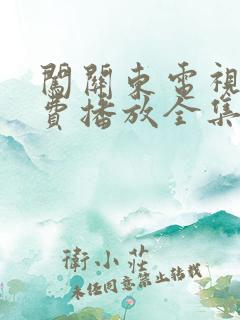 闖關東電視
費播放全集
衛小莊
未經同意禁止轉載